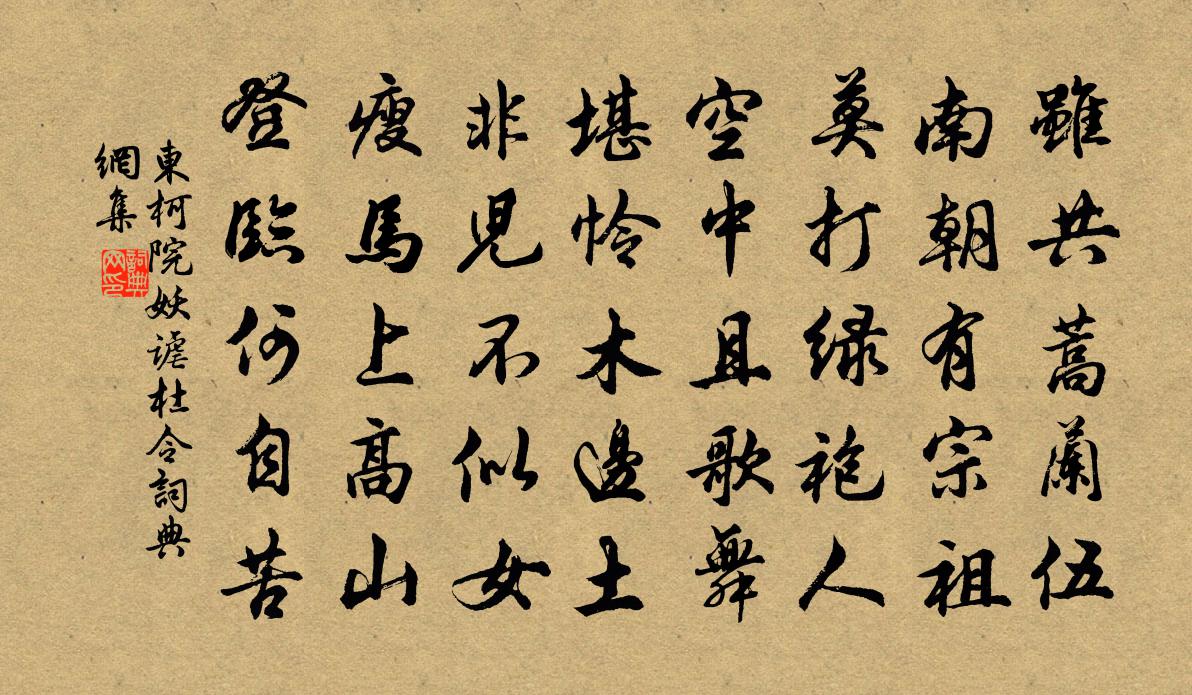 雖共蒿蘭伍
南朝有宗祖
莫打綠袍人
空中且歌舞
堪怜木邊土
非兒不似女
瘦馬上高山
登臨何自苦
東柯院妖謔杜令詞典
網集
詞典
网印